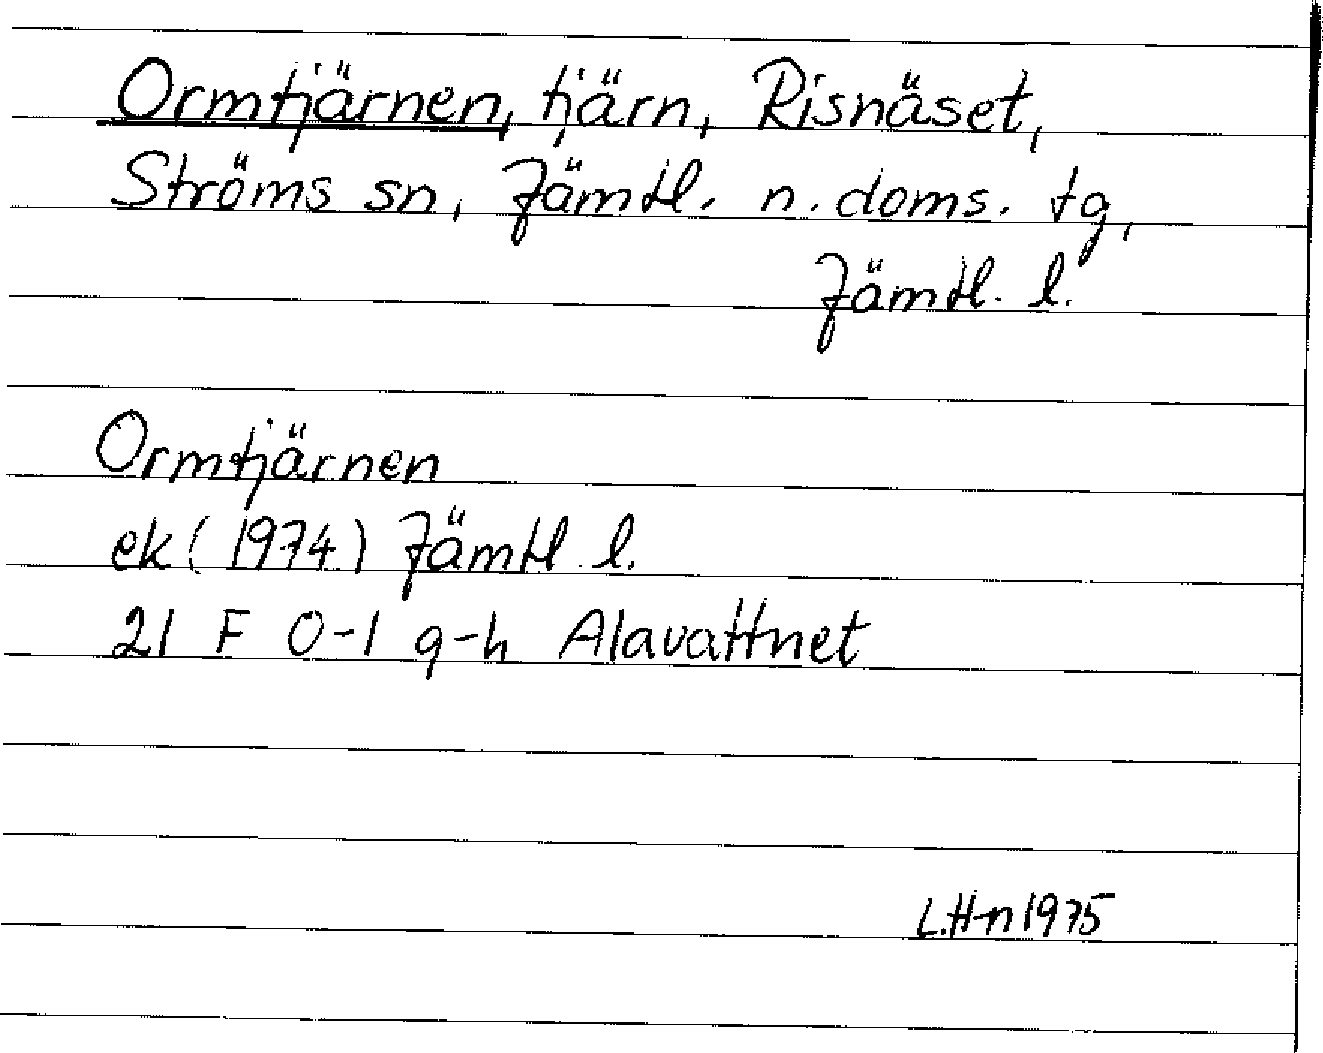 Ormtjärnen, tjärn, Risnäset,
Ströms sn, Jämtl. n. doms. tg,
Jämtl. l.
Ormtjärnen
ek (1974) Jämtl l.
21 F 0-1 g-h Alavattnet
L.H-n 1975